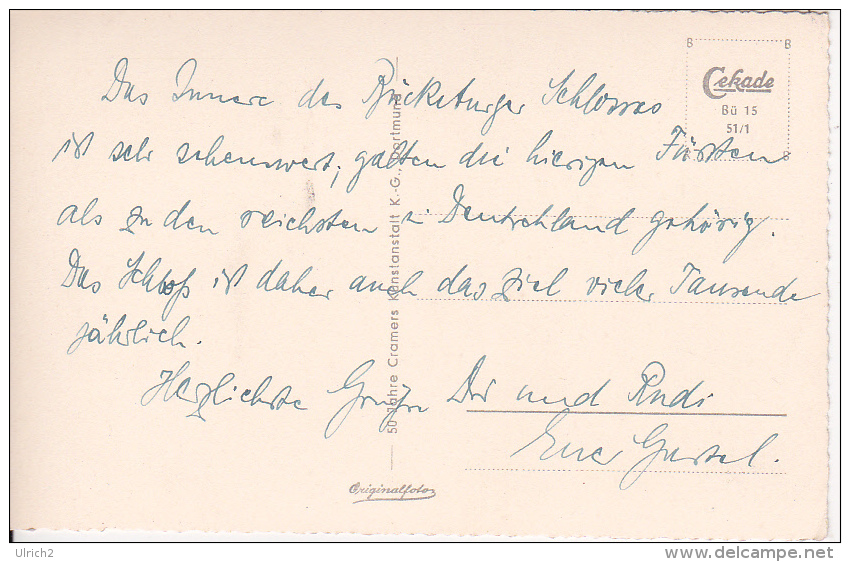 Das Innere des Bückeburger Schlosses
ist sehr sehenswert, galten die hiesigen Fürsten
als zu den reichsten in Deutschland gehörig.
Das Schloß ist daher auch das Ziel vieler Tausende
jährlich.
Herzlichste Grüße Dir und Rudi
Eure
B B
Cekade
Bü 15
51/1
B B
50 Jahre Cramers Kunstanstalt K.-G., Dortmund
Originalfoto
Ulrich2
www.delcampe.net